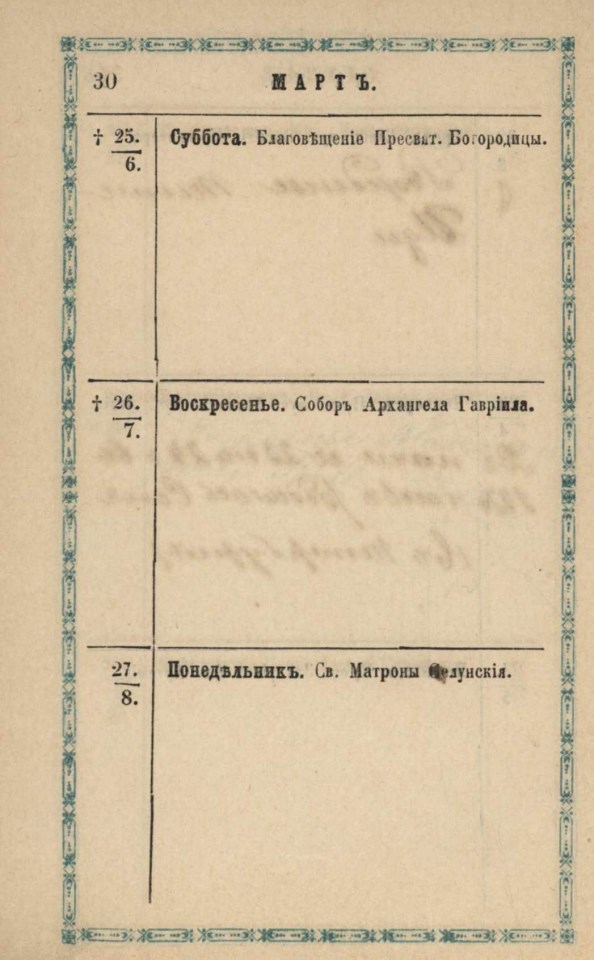 30 МАРТЪ.
† 25. Суббота. Благовѣщеніе Пресвят. Богородицы.
6.
† 26. Воскресенье. Соборъ Архангела Гавріила.
7.
27. Понедѣльникъ. Св. Матроны Селунскія.
8.